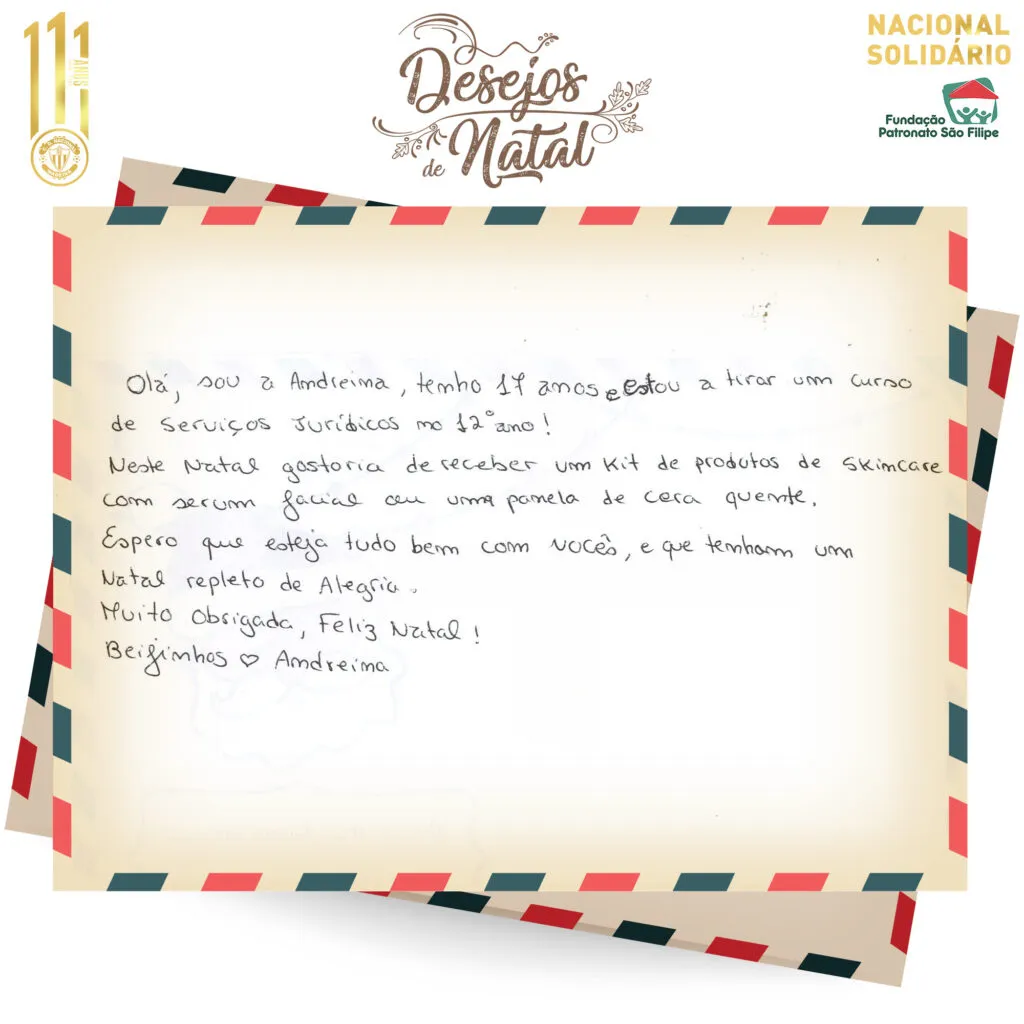 111
ANOS
Desejos
de Natal
NACIONAL
SOLIDÁRIO
Fundação
Patronato São Filipe
Olá, sou a Andreina, tenho 17 anos e estou a tirar um curso
de Serviços Jurídicos no 12º ano!
Neste Natal gostaria de receber um Kit de produtos de Skincare
com serum facial ou uma panela de cera quente.
Espero que esteja tudo bem com vocês, e que tenham um
Natal repleto de Alegria.
Muito Obrigada, Feliz Natal!
Beijinhos ♡ Andreina